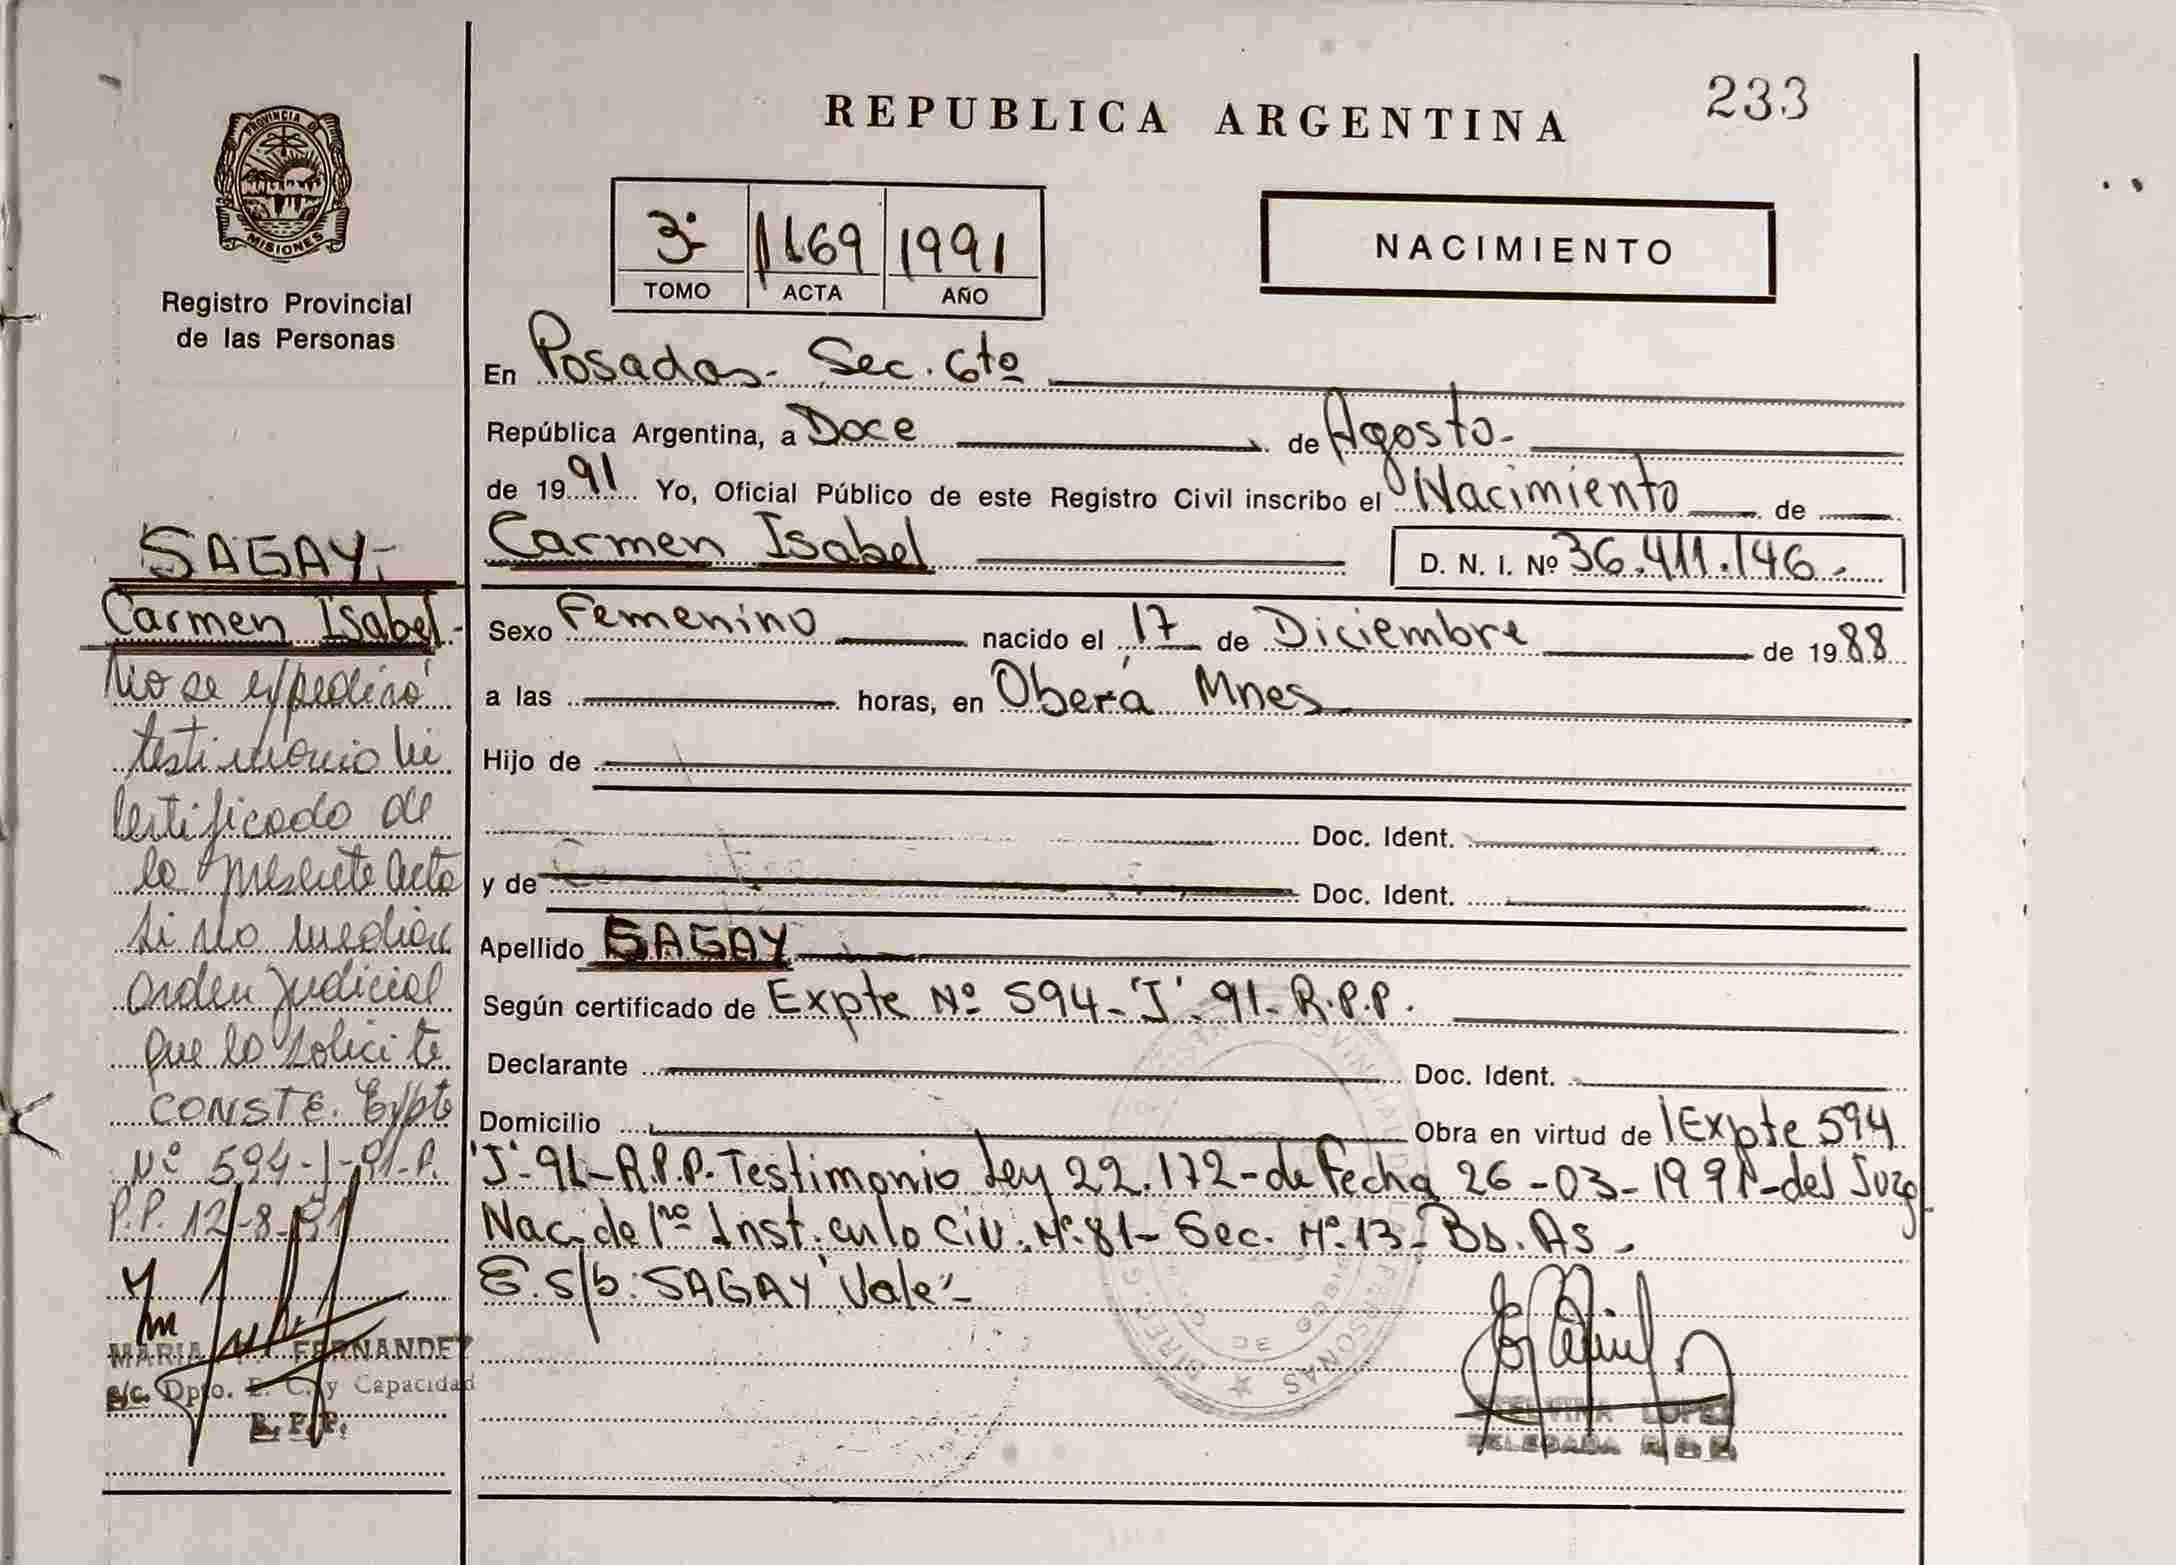 233
REPUBLICA ARGENTINA
PROVINCIA DE
MISIONES
Registro Provincial
de las Personas
3º 1169 1991
TOMO ACTA AÑO
NACIMIENTO
En Posadas- Sec. 6to
República Argentina, a Doce de Agosto-
de 1991 Yo, Oficial Público de este Registro Civil inscribo el Nacimiento de
Carmen Isabel D. N. I. Nº 36.411.146.
Sexo Femenino nacido el 17 de Diciembre de 1988
a las horas, en Oberá Mnes
Hijo de
Doc. Ident.
y de Doc. Ident.
Apellido SAGAY
Según certificado de Expte Nº 594-'J'-91-R.P.P.
Declarante Doc. Ident.
Domicilio Obra en virtud de Expte 594
'J'-91-R.P.P. Testimonio Ley 22.172-de Fecha 26-03-1991-del Juzg
Nac. de 1ro Inst. en lo Civ. Nº 81- Sec. Nº 13- Bs. As.
E. s/b: SAGAY Vale-
SAGAY-
Carmen Isabel-
No se expedirá
testimonio ni
certificado de
la presente acta
si no mediar
orden judicial
que lo solicite
CONSTE. Expte
Nº 594-J-91-R.
P.P. 12-8-91
MARIA FERNANDEZ
a/c. Dpto. E. C. y Capacidad
R. P. P.
LOPEZ
DELEGADA R.P.P.